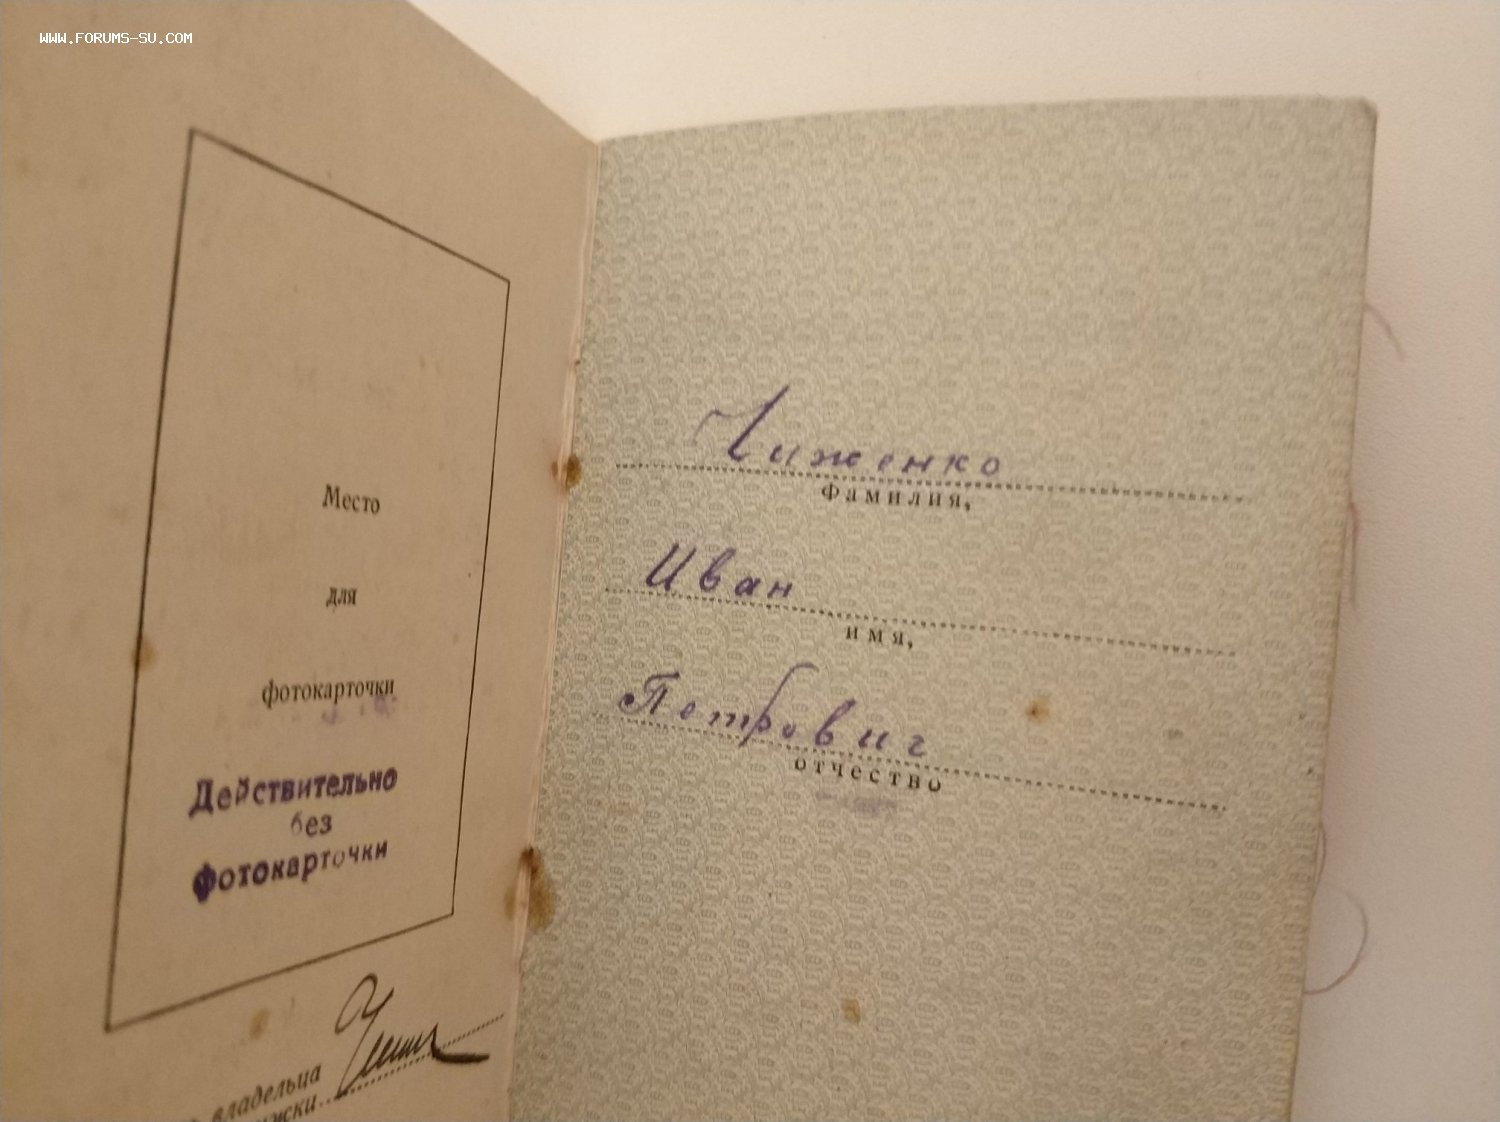 WWW.FORUMS-SU.COM
Место
для
фотокарточки
Действительно
без
фотокарточки
владельца
Чиженко
Фамилия,
Иван
имя,
Петрович
отчество